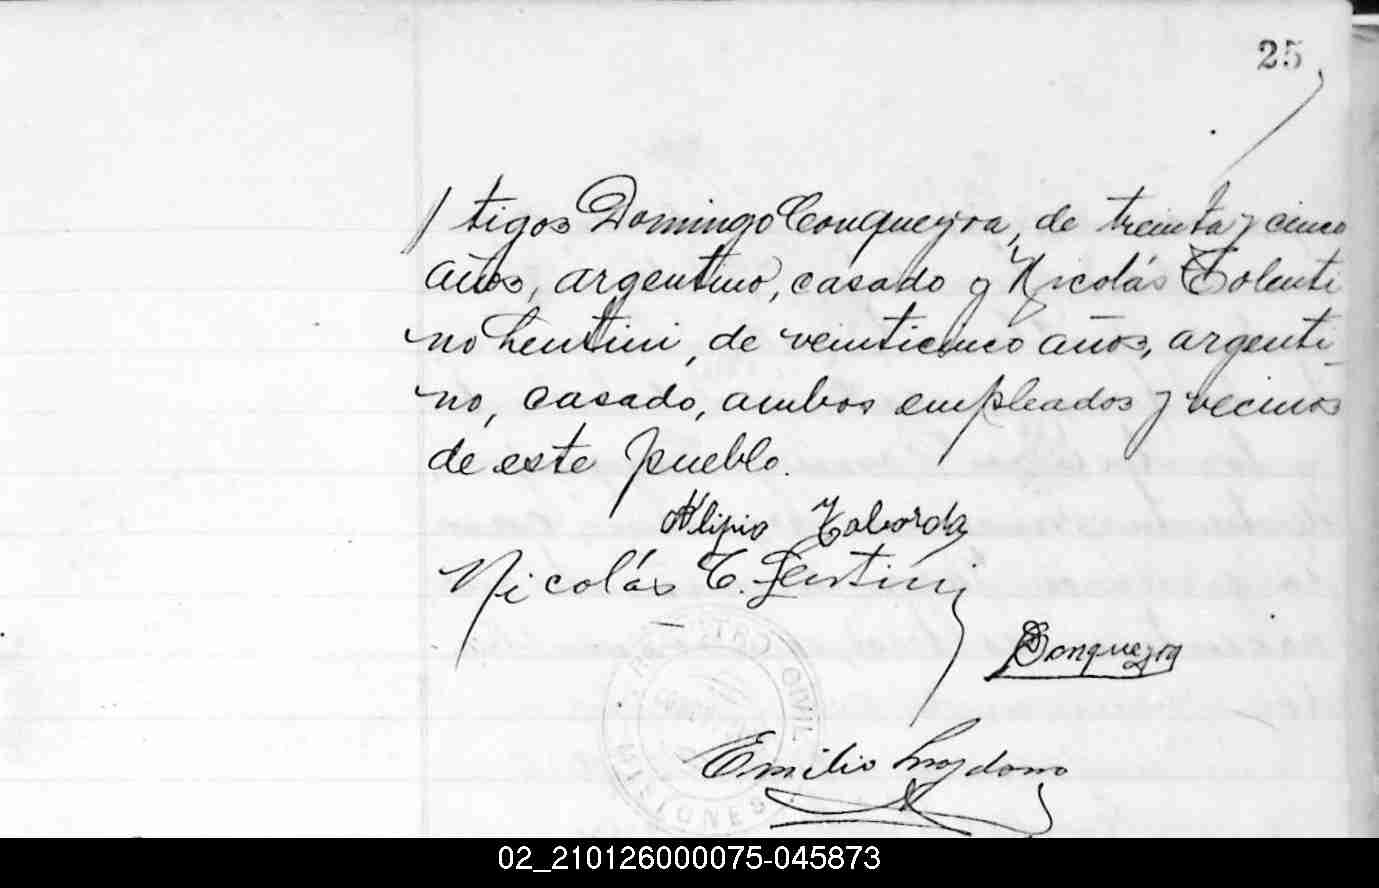 25
tigos Domingo Conqueyra, de treinta y cinco
años, argentino, casado y Nicolás Tolenti
no Lentini, de veinticinco años, argenti_
no, casado, ambos empleados y vecinos
de este pueblo.
Alipio Taborda
Nicolás T. Lentini
DConqueyra
REGISTRO CIVIL
Emilio
MISIONES
02_210126000075-045873